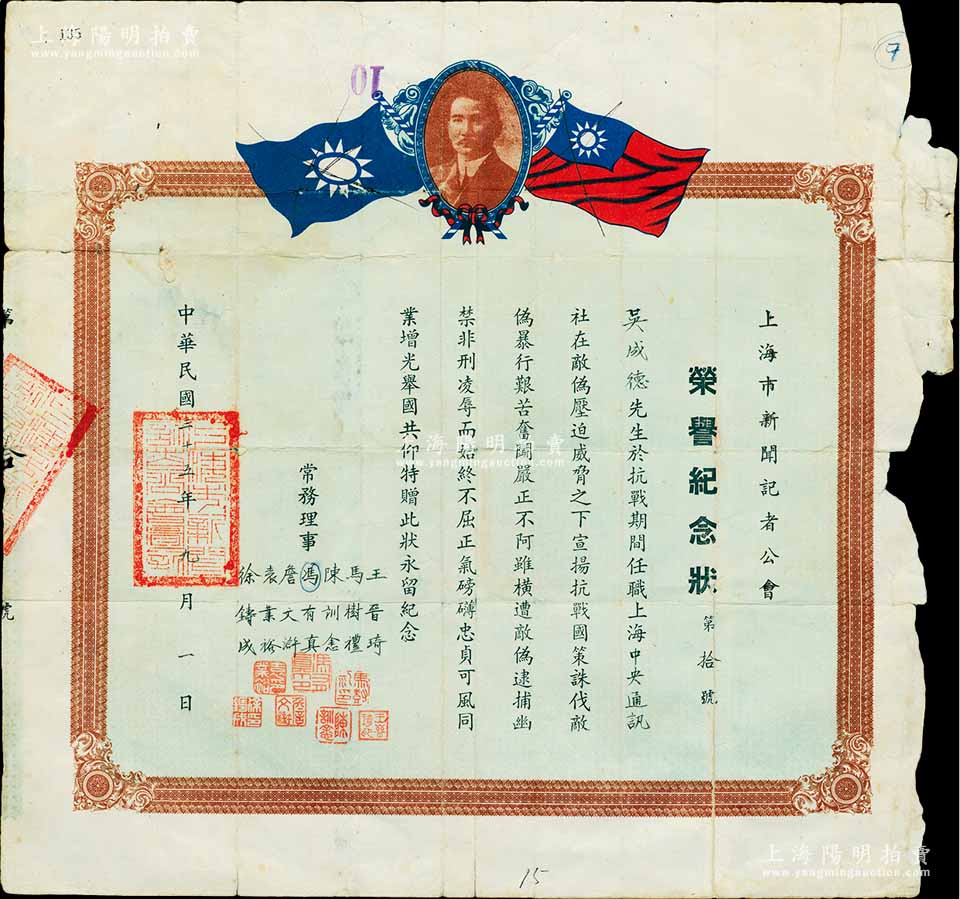 135
7
10
上海市新聞記者公會
榮譽紀念狀
第拾號
吳成德先生於抗戰期間任職上海中央通訊
社在敵偽壓迫威脅之下宣揚抗戰國策誅伐敵
偽暴行艱苦奮鬭嚴正不阿雖橫遭敵偽逮捕幽
禁非刑凌辱而始終不屈正氣磅礴忠貞可風同
業增光舉國共仰特贈此狀永留紀念
常務理事
王晉琦
馬樹禮
陳訓悆
馮有真
詹文滸
袁業裕
徐鑄成
中華民國三十五年九月一日
第
拾
號
15
上海陽明拍賣
www.yangmingauction.com
上海陽明拍賣
www.yangmingauction.com
上海陽明拍賣
www.yangmingauction.com